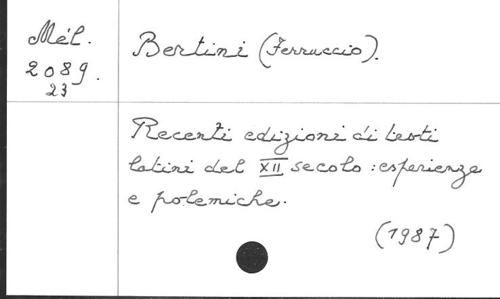 Mél.
2089.
23
Bertini (Ferruccio).
Recenti edizioni di testi
latini del XII secolo : esperienze
e polemiche.
(1987)